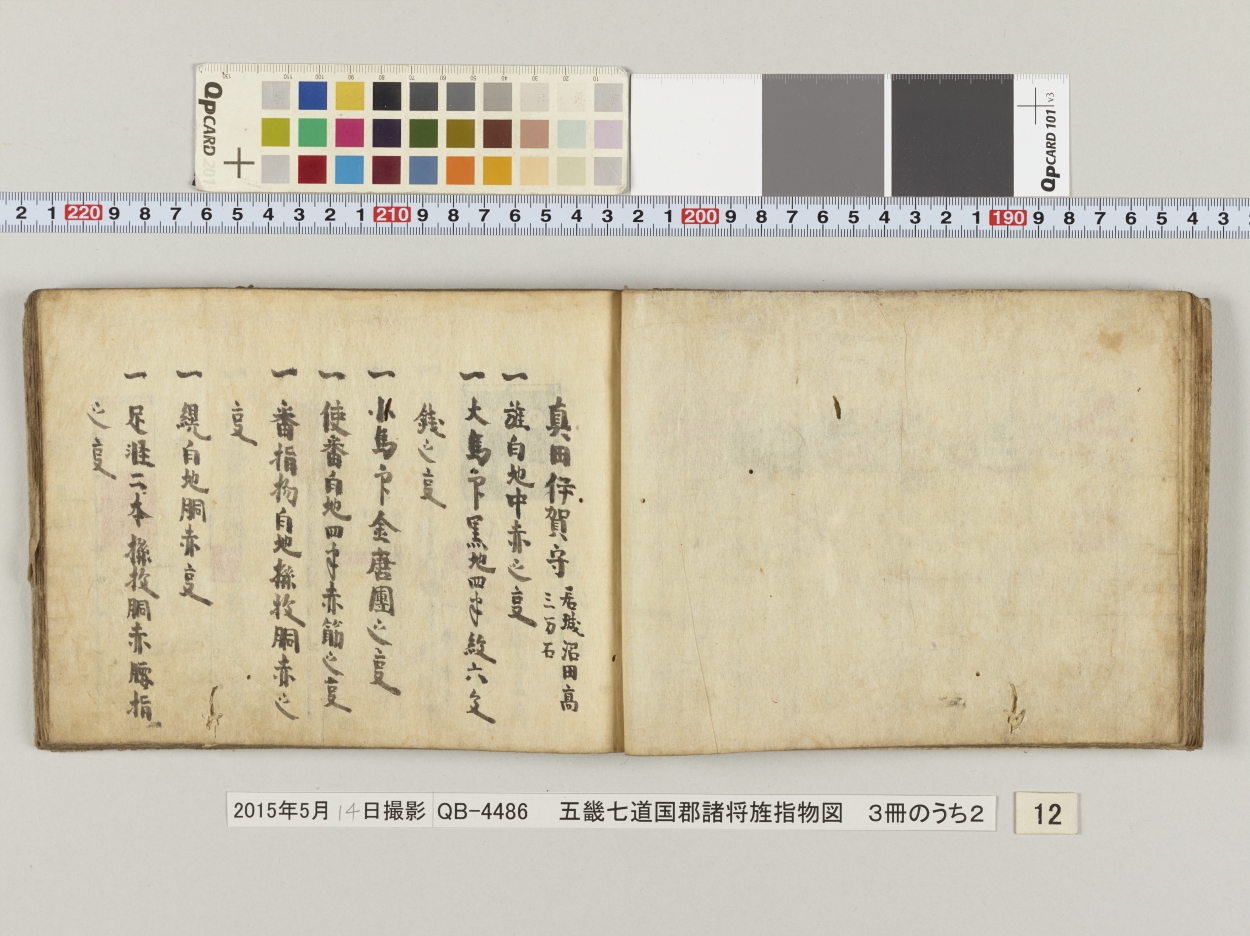 QpCARD 201
130 110 100 90 80 70 60 50 40 30 20 10
QpCARD 101 v3
2 1 220 9 8 7 6 5 4 3 2 1 210 9 8 7 6 5 4 3 2 1 200 9 8 7 6 5 4 3 2 1 190 9 8 7 6 5 4 3
真田伊賀守 居城沼田高
三万石
一 旌白地中赤之事
一 大馬印黒地四半紋六文
銭之事
一 小馬印金唐團之事
一 使番白地四半赤筋之事
一 番指物白地撓胴赤之
事
一 縨白地胴赤事
一 足準二本撓胴赤腰指
之事
2015年5月14日撮影 QB-4486 五畿七道国郡諸将旌指物図 3冊のうち2
12